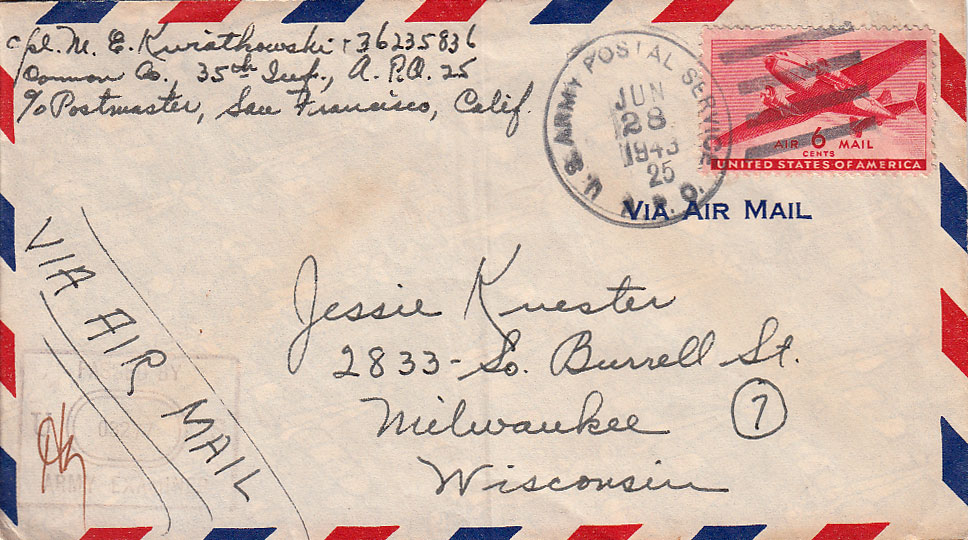 Cpl. M. E. Kwiatkowski 36235836
Cannon Co., 35th Inf., A.P.O. 25
c/o Postmaster, San Francisco, Calif.
U.S. ARMY POSTAL SERVICE
JUN
28
1943
25
A.P.O.
AIR 6 MAIL
CENTS
UNITED STATES OF AMERICA
VIA AIR MAIL
VIA AIR MAIL
Jessie Kuester
2833 - So. Burrell St.
Milwaukee 7
Wisconsin
BY
ARMY EXAMINER